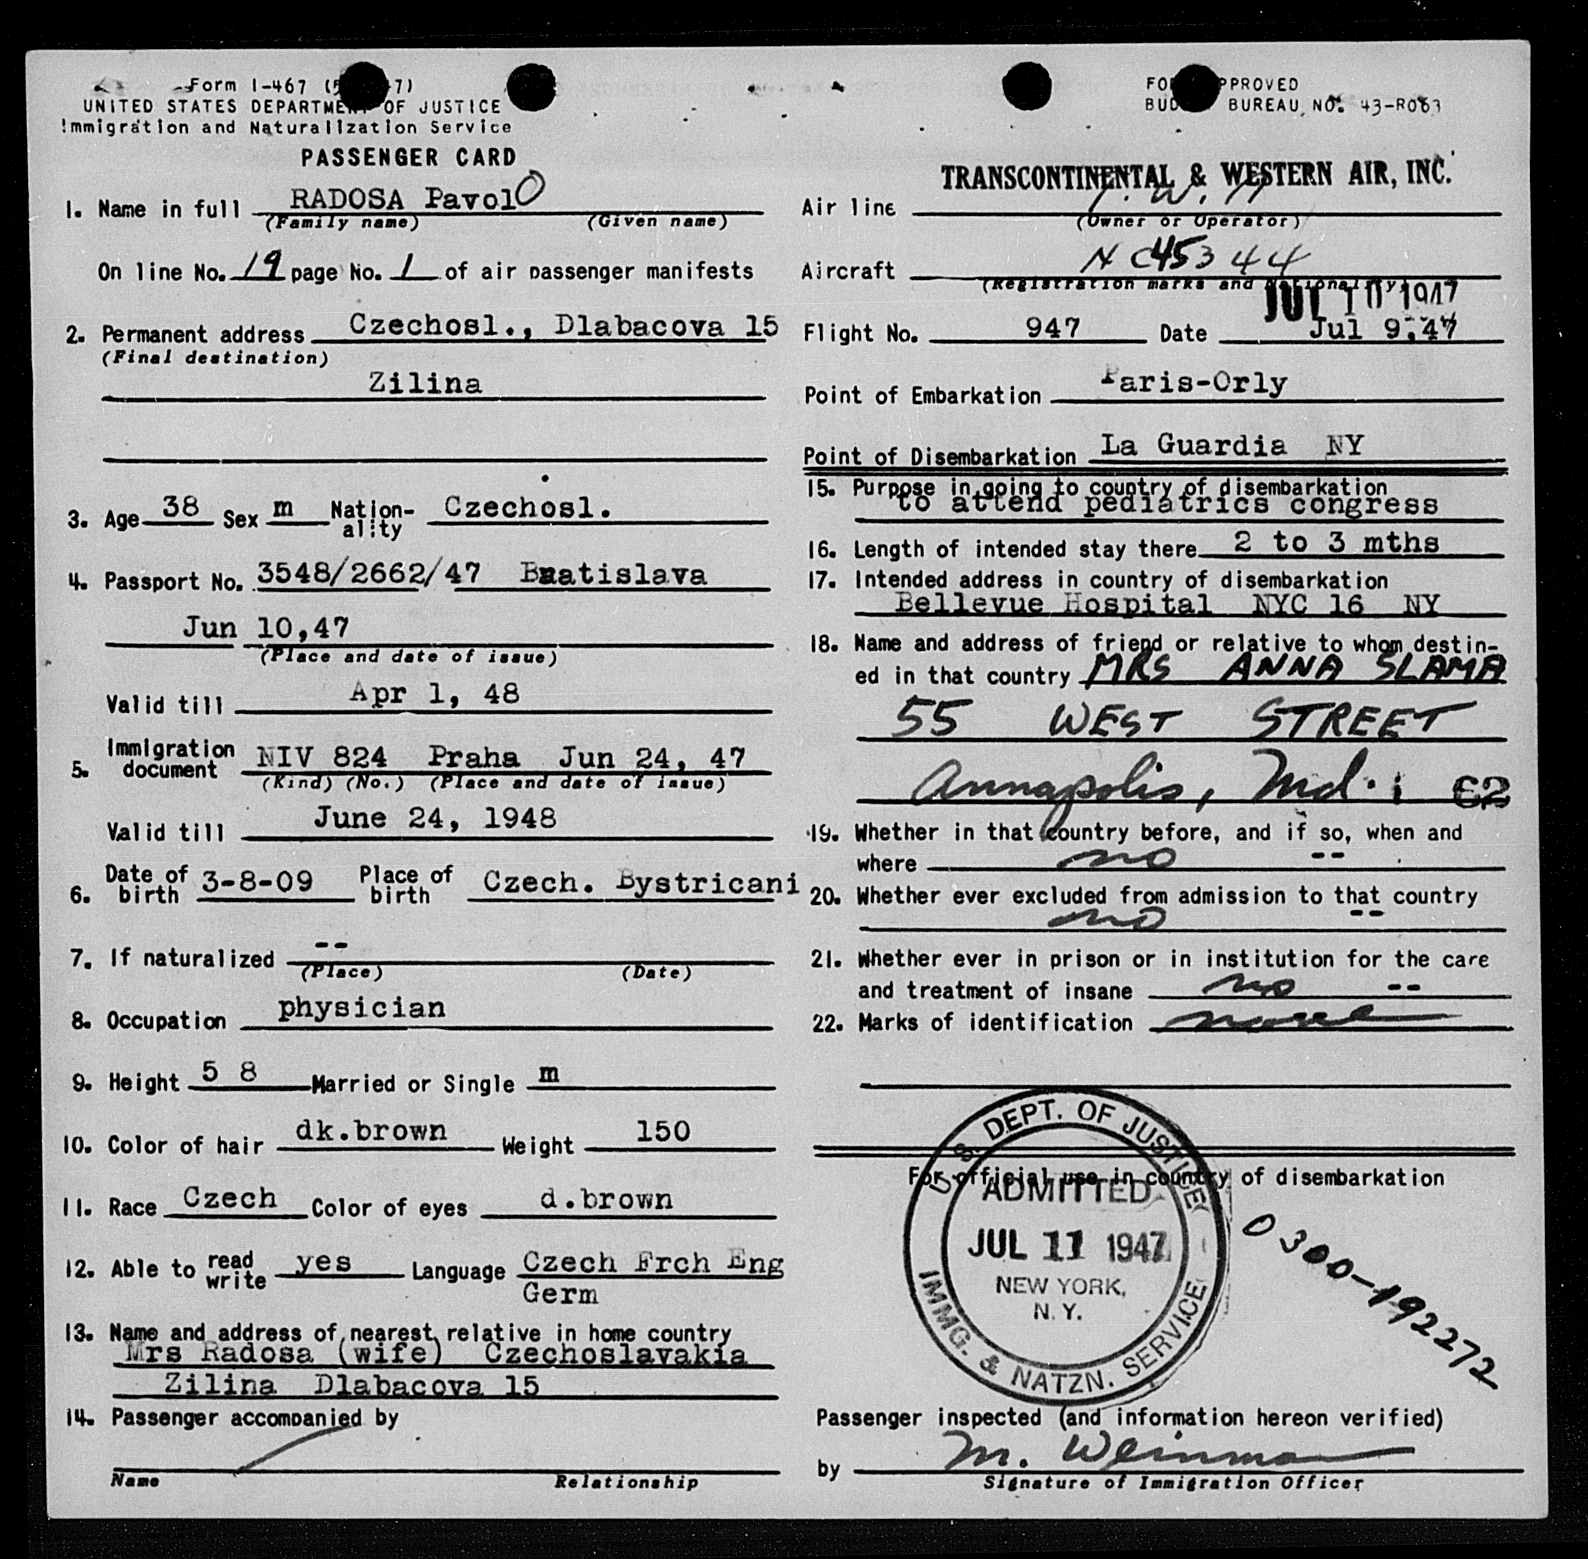 Form I-467
UNITED STATES DEPARTMENT OF JUSTICE
Immigration and Naturalization Service
PASSENGER CARD
1. Name in full RADOSA Pavol
(Family name) (Given name)
On line No. 19 page No. 1 of air passenger manifests
2. Permanent address Czechosl., Dlabacova 15
(Final destination)
Zilina
3. Age 38 Sex m Nation-ality Czechosl.
4. Passport No. 3548/2662/47 Bratislava
Jun 10,47
(Place and date of issue)
Valid till Apr 1, 48
5. Immigration document NIV 824 Praha Jun 24, 47
(Kind) (No.) (Place and date of issue)
Valid till June 24, 1948
6. Date of birth 3-8-09 Place of birth Czech. Bystricani
7. If naturalized --
(Place) (Date)
8. Occupation physician
9. Height 5 8 Married or Single m
10. Color of hair dk.brown Weight 150
11. Race Czech Color of eyes d.brown
12. Able to read write yes Language Czech Frch Eng
Germ
13. Name and address of nearest relative in home country
Mrs Radosa (wife) Czechoslavakia
Zilina Dlabacova 15
14. Passenger accompanied by
Name Relationship
FORM APPROVED
BUDGET BUREAU NO. 43-R063
TRANSCONTINENTAL & WESTERN AIR, INC.
Air line T.W.A
(Owner or Operator)
Aircraft NC45344
(Registration marks and nationality)
JUL 10 1947
Flight No. 947 Date Jul 9.47
Point of Embarkation Paris-Orly
Point of Disembarkation La Guardia NY
15. Purpose in going to country of disembarkation
to attend pediatrics congress
16. Length of intended stay there 2 to 3 mths
17. Intended address in country of disembarkation
Bellevue Hospital NYC 16 NY
18. Name and address of friend or relative to whom destin-
ed in that country MRS ANNA SLAMA
55 WEST STREET
Annapolis, Md. 62
19. Whether in that country before, and if so, when and
where no --
20. Whether ever excluded from admission to that country
no --
21. Whether ever in prison or in institution for the care
and treatment of insane no --
22. Marks of identification none
For official use in country of disembarkation
U. S. DEPT. OF JUSTICE
ADMITTED
JUL 11 1947
NEW YORK,
N.Y.
IMMG. & NATZN. SERVICE
0300-192272
Passenger inspected (and information hereon verified)
by M. Weinman
Signature of Immigration Officer